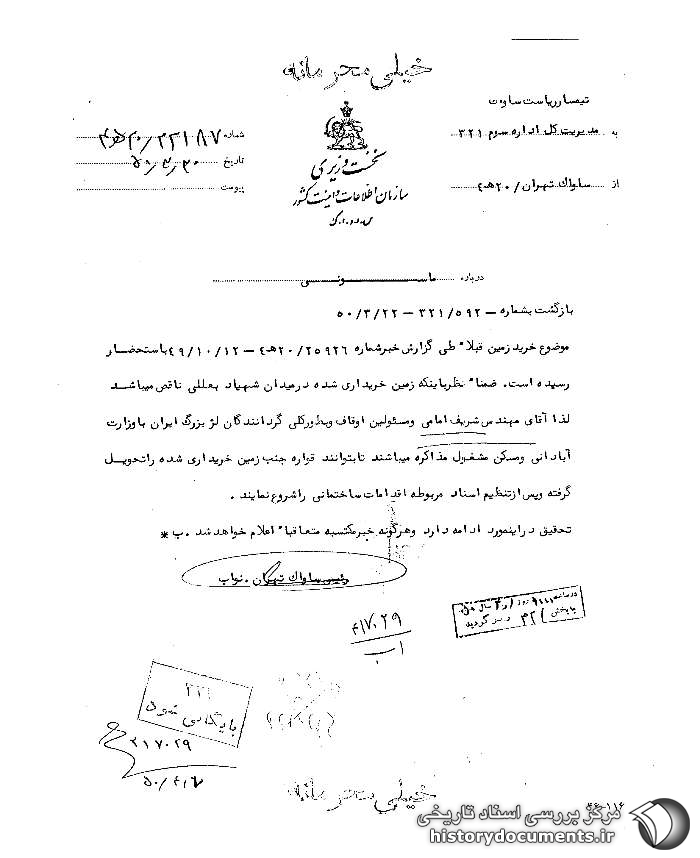 خیلی محرمانه
تیمسار ریاست ساواک
به مدیریت کل اداره سوم ۳۲۱
از ساواک تهران /۲۰ﻫ۴
نخست وزیری
سازمان اطلاعات و امنیت کشور
س.ا.و.ا.ک
شماره ۲۲۱۸۷/۲۰ﻫ۴
تاریخ ۵۰/۳/۳۰
پیوست
درباره ماسونی
بازگشت بشماره – ۳۲۱/۵۹۲ – ۵۰/۳/۲۲
موضوع خرید زمین قبلاً طی گزارش خبر شماره ۲۰/۲۵۹۲۶ﻫ۴ – ۴۹/۱۰/۱۲ باستحضار
رسیده است. ضمناً نظر باینکه زمین خریداری شده در میدان شهیاد بعللی ناقص میباشد
لذا آقای مهندس شریف امامی و مسئولین اوقاف و بطور کلی گردانندگان لژ بزرگ ایران با وزارت
آبادانی و مسکن مشغول مذاکره میباشند تا بتوانند قواره جنب زمین خریداری شده را تحویل
گرفته و پس از تنظیم اسناد مربوطه اقدامات ساختمانی را شروع نمایند .
تحقیق در اینمورد ادامه دارد و هرگونه خبر مکتسبه متعاقباً اعلام خواهد شد . ب *
رئیس ساواک تهران . نواب
۴۱۷۰۲۹
۳۲۱
بایگانی شود
۴۱۷۰۲۹
خیلی محرمانه
۴۶-۱۱۶
مرکز بررسی اسناد تاریخی
historydocuments.ir